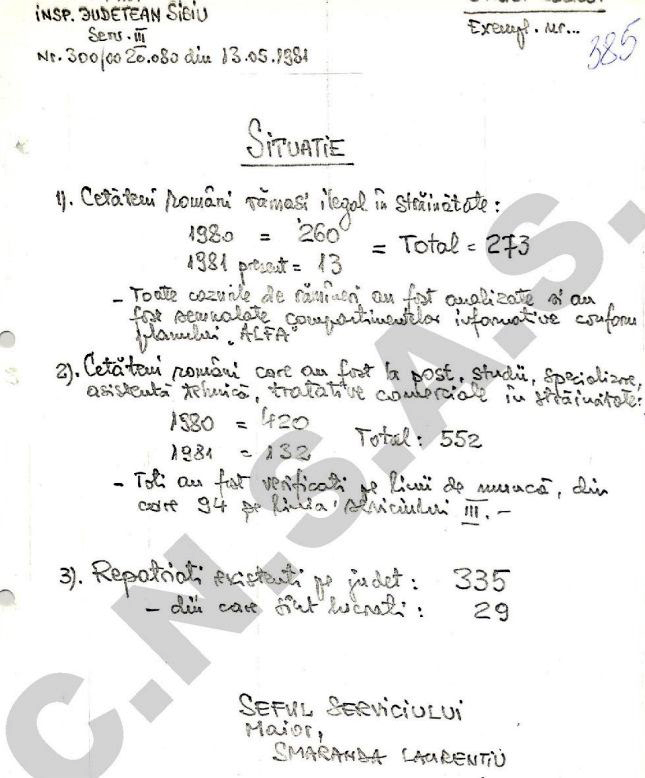 INSP. JUDETEAN SIBIU
Serv. III
Nr. 300/00 20.080 din 13.05.1981
Exempl. nr...
385
SITUATIE
1). Cetăteni români rămasi ilegal în străinătate:
1980 = 260
= Total = 273
1981 prezent = 13
- Toate cazurile de rămîneri au fost analizate si au
fost semnalate compartimentelor informative conform
planului "ALFA"
2). Cetăteni români care au fost la post, studii, specializare,
asistentă tehnică, tratative comerciale în străinătate:
1980 = 420
Total: 552
1981 = 132
- Toti au fost verificati pe linii de muncă, din
care 94 pe linia serviciului III. -
3). Repatriati existenti pe judet: 335
- din care sînt lucrati: 29
SEFUL SERVICIULUI
Maior,
SMARANDA LAURENTIU
C.N.S.A.S.